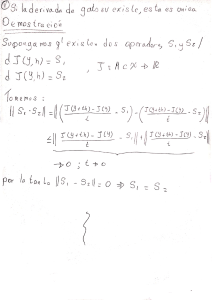 ① Si la derivada de gato su existe, esta es unica
Demostració
Supongamos q' existen dos operadores, S₁ y S₂ /
d J(y,h) = S₁
d J(y,h) = S₂ , J: A ⊂ X → R
Tomemos:
‖S₁ - S₂‖ = ‖(J(y+th)-J(y)/t - S₁) - (J(y+th)-J(y)/t - S₂)‖
≤ ‖J(y+th)-J(y)/t - S₁‖ + ‖J(y+th)-J(y)/t - S₂‖
→ 0 ; t → 0
por lo tanto ‖S₁ - S₂‖ = 0 ⇒ S₁ = S₂